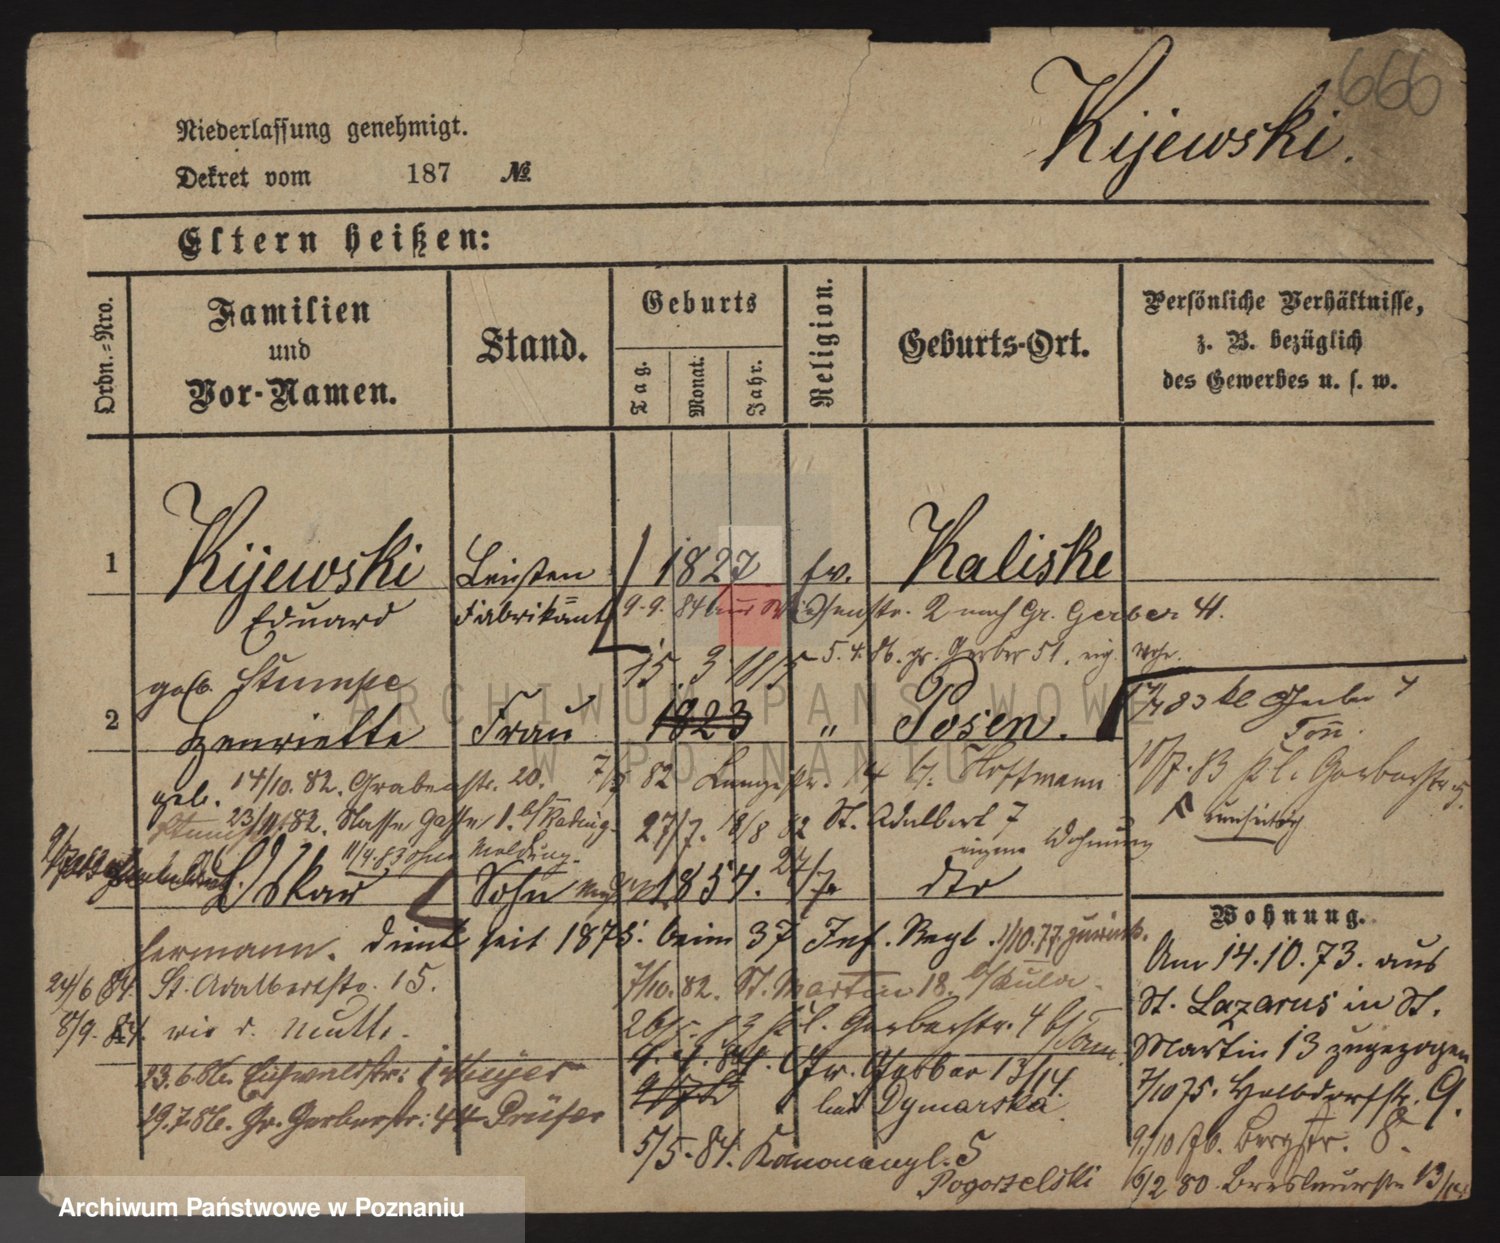 666
Kijewski.
Niederlassung genehmigt.
Dekret vom 187 №.
Eltern heißen:
Ordn.-Nro.
Familien
und
Vor-Namen.
Stand.
Geburts
Tag.
Monat.
Jahr.
Religion.
Geburts-Ort.
Persönliche Verhältnisse,
z. B. bezüglich
des Gewerbes u. s. w.
1 Kijewski Leisten 1827 ev. Kaliske
Eduard Fabrikant 9.9.84 2 nach Gr. Gerber 41.
15. 3 1815 5.4.86. gr. Gerber 51.
geb. Stumpe
2 Henriette Frau 1823 " Posen.
17/7 83 kl Gerber 7
geb. 14/10. 82. Grabenstr. 20. 82 Langestr. 14 b/. Hoffmann
18/7.83 kl. Gerberstr.
23/11 82. Nasse Gasse 1. 27/7. 18/8 82 St. Adalbert 7
eigene Wohnung
11/4.83 ohne Meldung.
Oskar Sohn 1854. dto
Hermann. dient seit 1875 beim 37 Inf. Regt. 1/10.77. zurück.
Wohnung.
Am 14.10.73. aus
St. Lazarus in St.
Martin 13 zugezogen
7/10 75. Halbdorfstr. 9.
9/10 76. Bergstr. 8.
6/2 80 Breslauerstr 13/14
24/6 84. St. Adalbertstr. 15. 7/10.82. St. Martin 18.
8/9. 84. wie d. Mutter. 26/5. 83 kl. Gerberstr. 4
23.6.86. Eichwaldstr: 1 Meyer Gr. Gerber 13/14
bei Dymarska
29.7.86. Gr. Gerberstr: 44 Prüfer
5/5.84. Kanonenpl. 5
Pogorzelski
ARCHIWUM PAŃSTWOWE
W POZNANIU
Archiwum Państwowe w Poznaniu